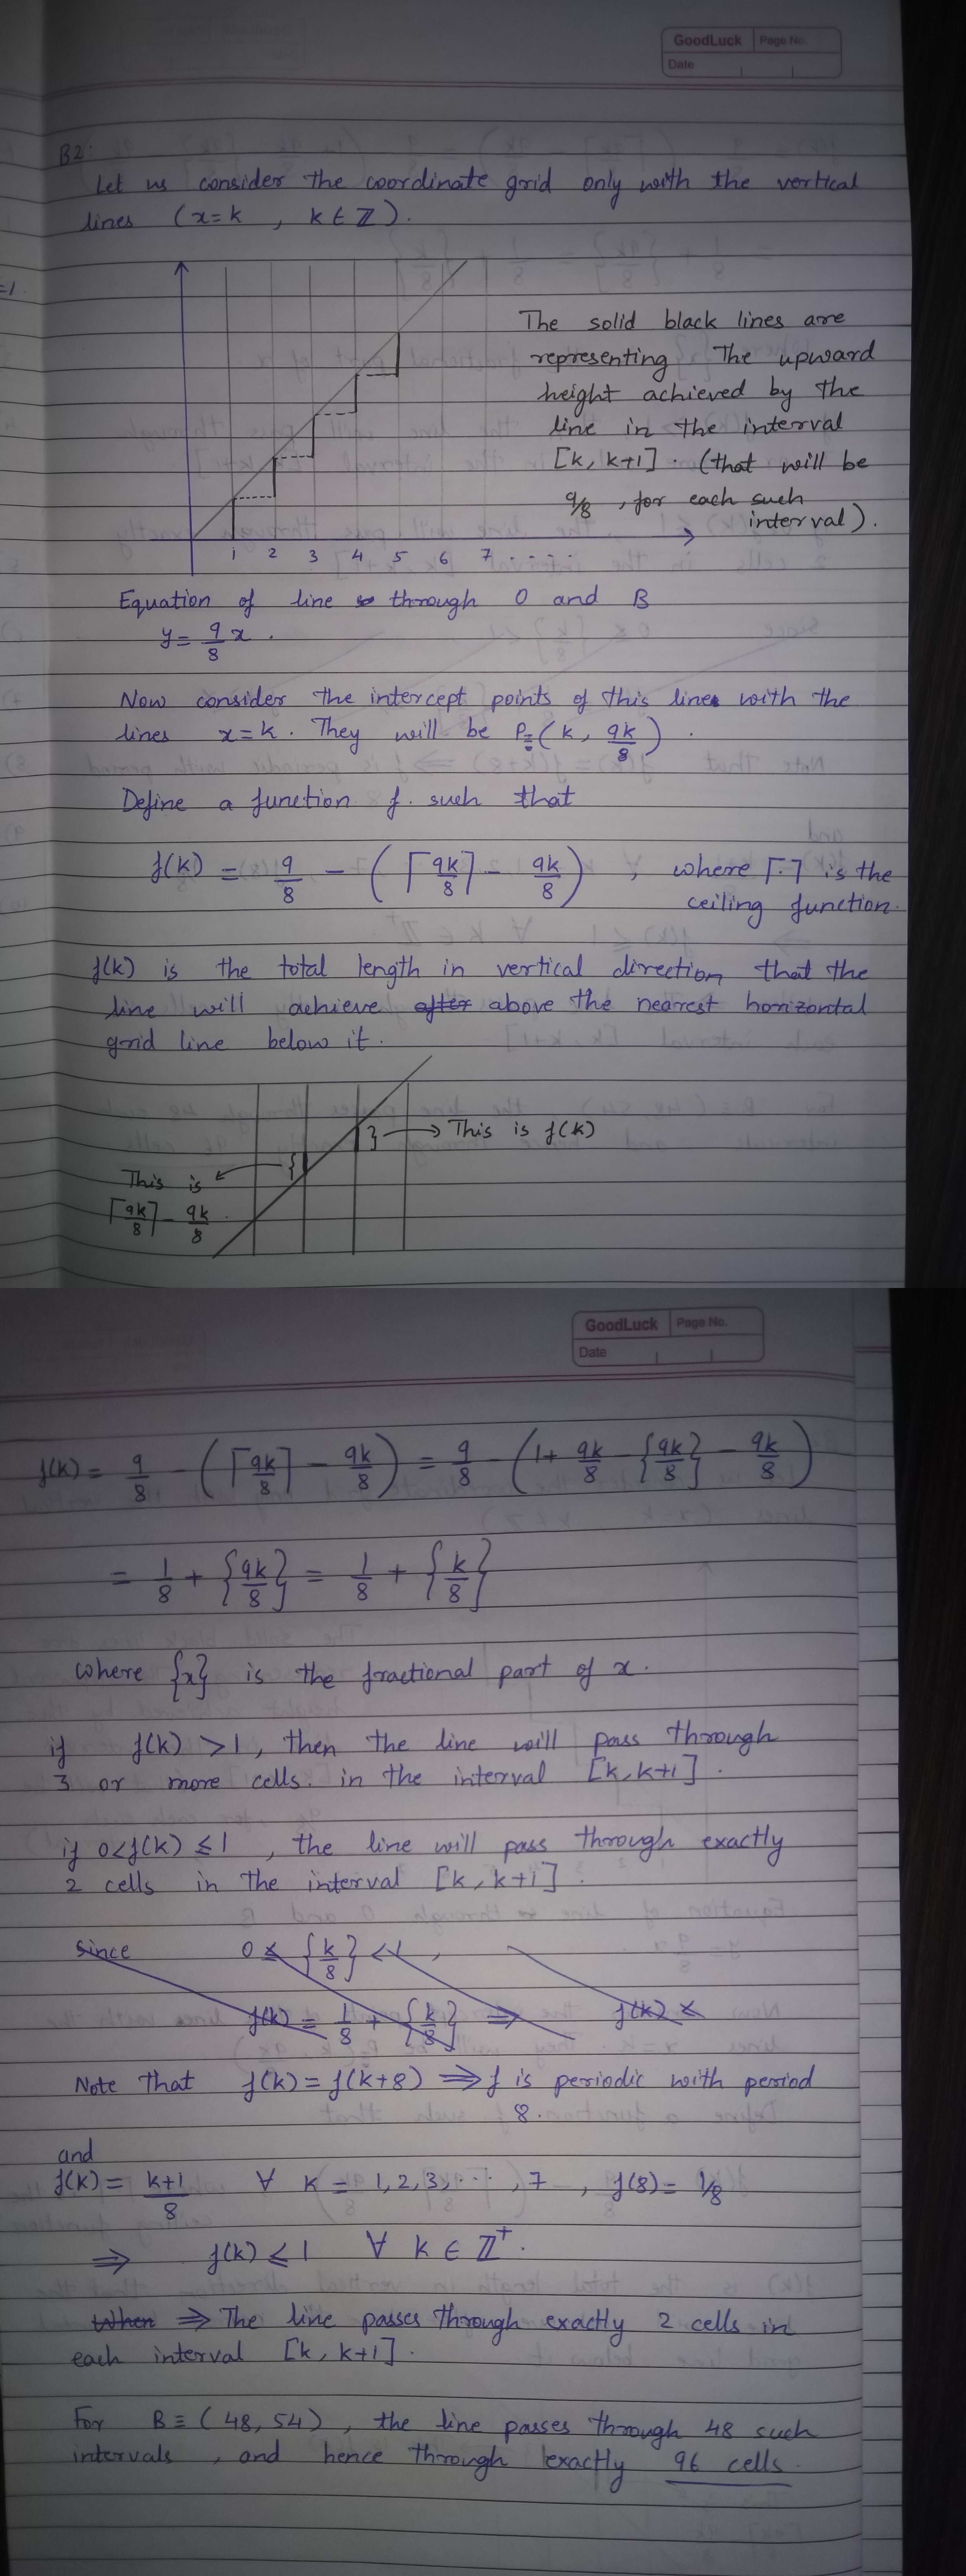 GoodLuck Page No.
Date
B2:
Let us consider the coordinate grid only with the vertical
lines (x=k , k ∈ ℤ).
=1
The solid black lines are
representing The upward
height achieved by the
line in the interval
[k, k+1]. (that will be
9/8 , for each such
interval).
1 2 3 4 5 6 7 . . . . .
Equation of line through O and B
y = 9/8 x .
Now consider the intercept points of this line with the
lines x=k. They will be P≡(k, 9k/8) .
Define a function f. such that
f(k) = 9/8 - (⌈9k/8⌉ - 9k/8) , where ⌈.⌉ is the
ceiling function.
f(k) is the total length in vertical direction that the
line will achieve after above the nearest horizontal
grid line below it.
} → This is f(k)
This is
⌈9k/8⌉ - 9k/8
GoodLuck Page No.
Date
f(k) = 9/8 - (⌈9k/8⌉ - 9k/8) = 9/8 - (1 + 9k/8 - {9k/8} - 9k/8)
= 1/8 + {9k/8} = 1/8 + {k/8}
where {x} is the fractional part of x.
if f(k) > 1, then the line will pass through
3 or more cells. in the interval [k, k+1].
if 0 < f(k) ≤ 1 , the line will pass through exactly
2 cells in the interval [k, k+1].
since 0 ≤ {k/8} < 1 ,
f(k) = 1/8 + {k/8} ⇒ f(k) <
Note that f(k) = f(k+8) ⇒ f is periodic with period
8.
and
f(k) = k+1/8 ∀ k = 1, 2, 3, ... , 7 , f(8) = 1/8
⇒ f(k) ≤ 1 ∀ k ∈ ℤ⁺.
When ⇒ The line passes through exactly 2 cells in
each interval [k, k+1].
For B ≡ (48, 54) , the line passes through 48 such
intervals , and hence through exactly 96 cells.